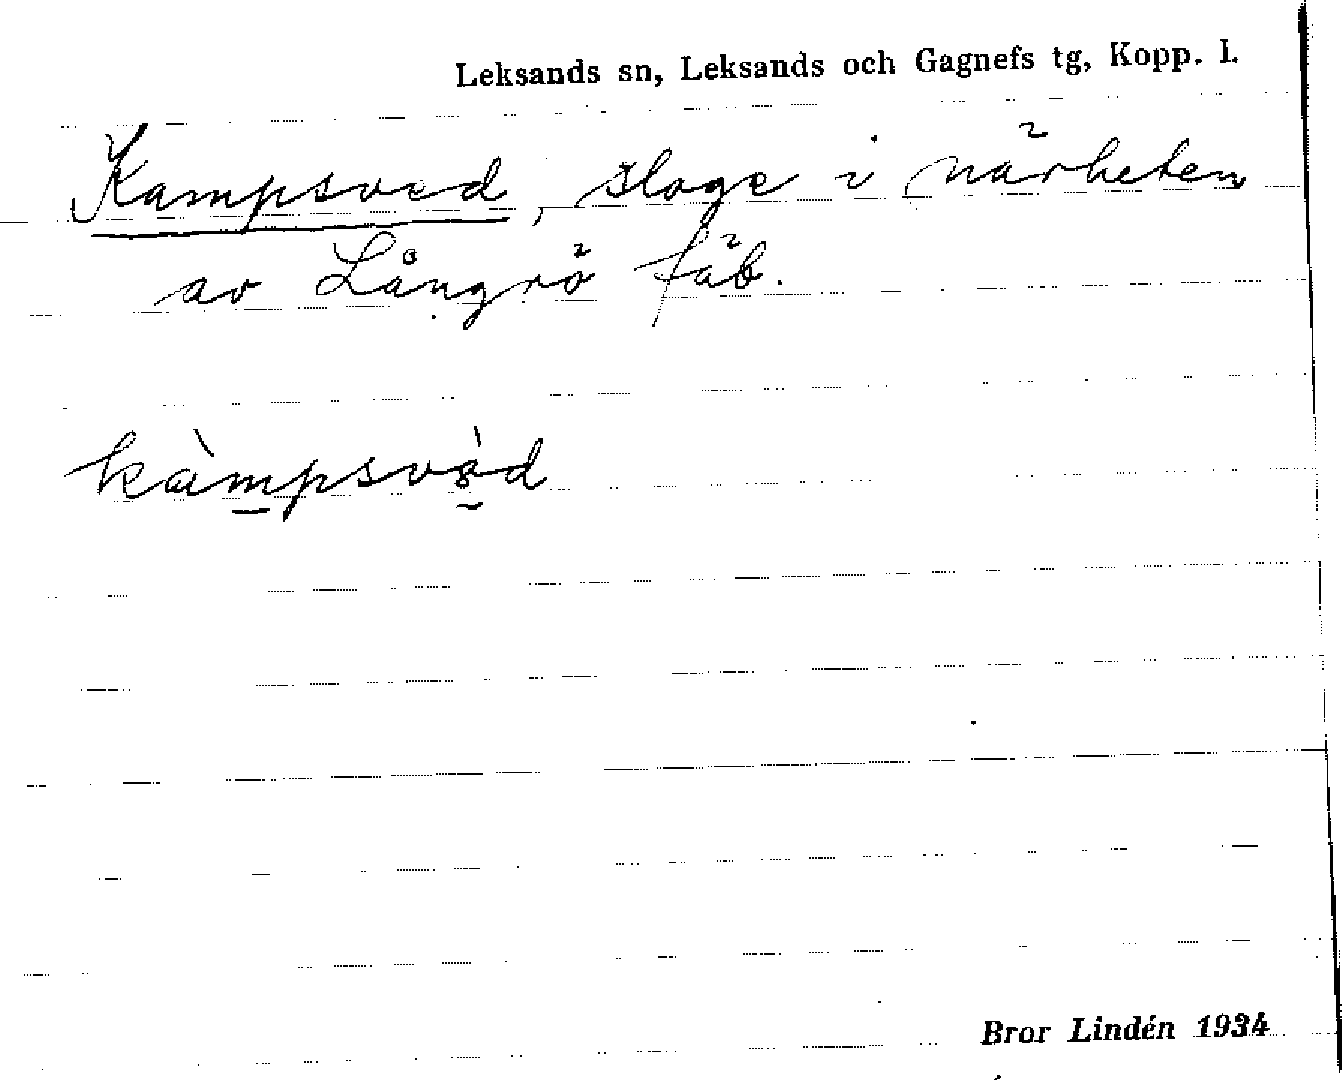 Leksands sn, Leksands och Gagnefs tg, Kopp. l.
Kampsved, sloge i närheten
av Långrö fäb.
kàmpsvə̀d
Bror Lindén 1934